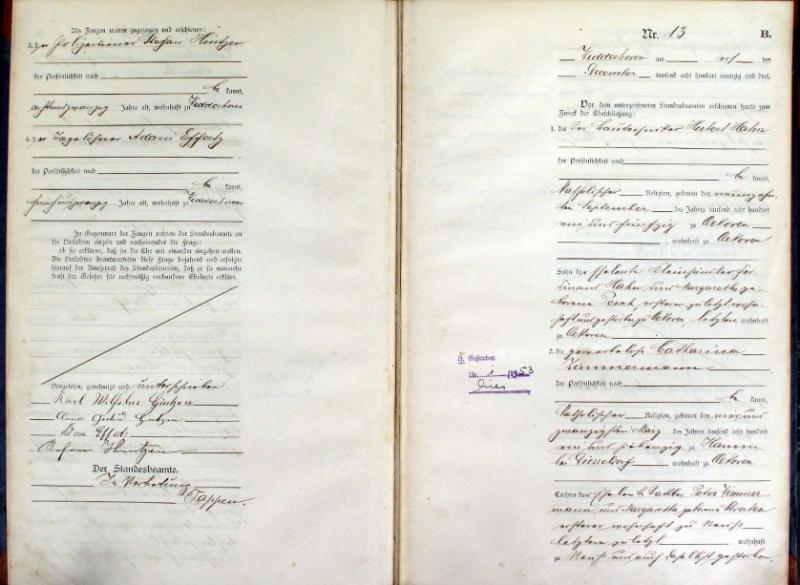 Als Zeugen waren zugezogen und erschienen:
3. der Polizeidiener Stefan Hintzen
der Persönlichkeit nach
be kannt,
achtundzwanzig Jahre alt, wohnhaft zu Hedderhoven
4. der Tagelöhner Adam Effertz
der Persönlichkeit nach
be kannt,
Jahre alt, wohnhaft zu Hedderhoven
In Gegenwart der Zeugen richtete der Standesbeamte an
die Verlobten einzeln und nacheinander die Frage:
ob sie erklären, daß sie die Ehe mit einander eingehen wollen.
Die Verlobten beantworteten diese Frage bejahend und erfolgte
hierauf der Ausspruch des Standesbeamten, daß er sie nunmehr
kraft des Gesetzes für rechtmäßig verbundene Eheleute erkläre.
Vorgelesen, genehmigt und unterschrieben
Karl Wilhelm Hintzen
Hintzen
Adam Effertz
Stefan Hintzen
Der Standesbeamte.
In Vertretung
Tappen.
Nr. 13 B.
am ten
December tausend acht hundert neunzig und drei.
Vor dem unterzeichneten Standesbeamten erschienen heute zum
Zweck der Eheschließung:
1. der Bautechniker Hubert Hahn
der Persönlichkeit nach
be kannt,
katholischer Religion, geboren den neunzehn-
ten September des Jahres tausend acht hundert
ein und fünfzig zu Oekoven
, wohnhaft zu Oekoven
Sohn der Eheleute Steinhändler Fer-
dinand Hahn und Margaretha ge-
borene Pesch, ersterer zuletzt wohn-
haft und gestorben zu Oekoven letztere wohnhaft
zu Oekoven
2. die gewerbelose Catharina
Zimmermann
der Persönlichkeit nach
be kannt,
katholischer Religion, geboren den vier und
zwanzigsten März des Jahres tausend acht hundert
ein und siebenzig zu Hamm
bei Düsseldorf wohnhaft zu Oekoven
Tochter der Eheleute Sattler Peter Zimmer-
mann und Margaretha geborene
ersterer wohnhaft zu Neuss
letztere zuletzt wohnhaft
zu Neuss und auch daselbst gestorben
Gestorben
Nr. 1953